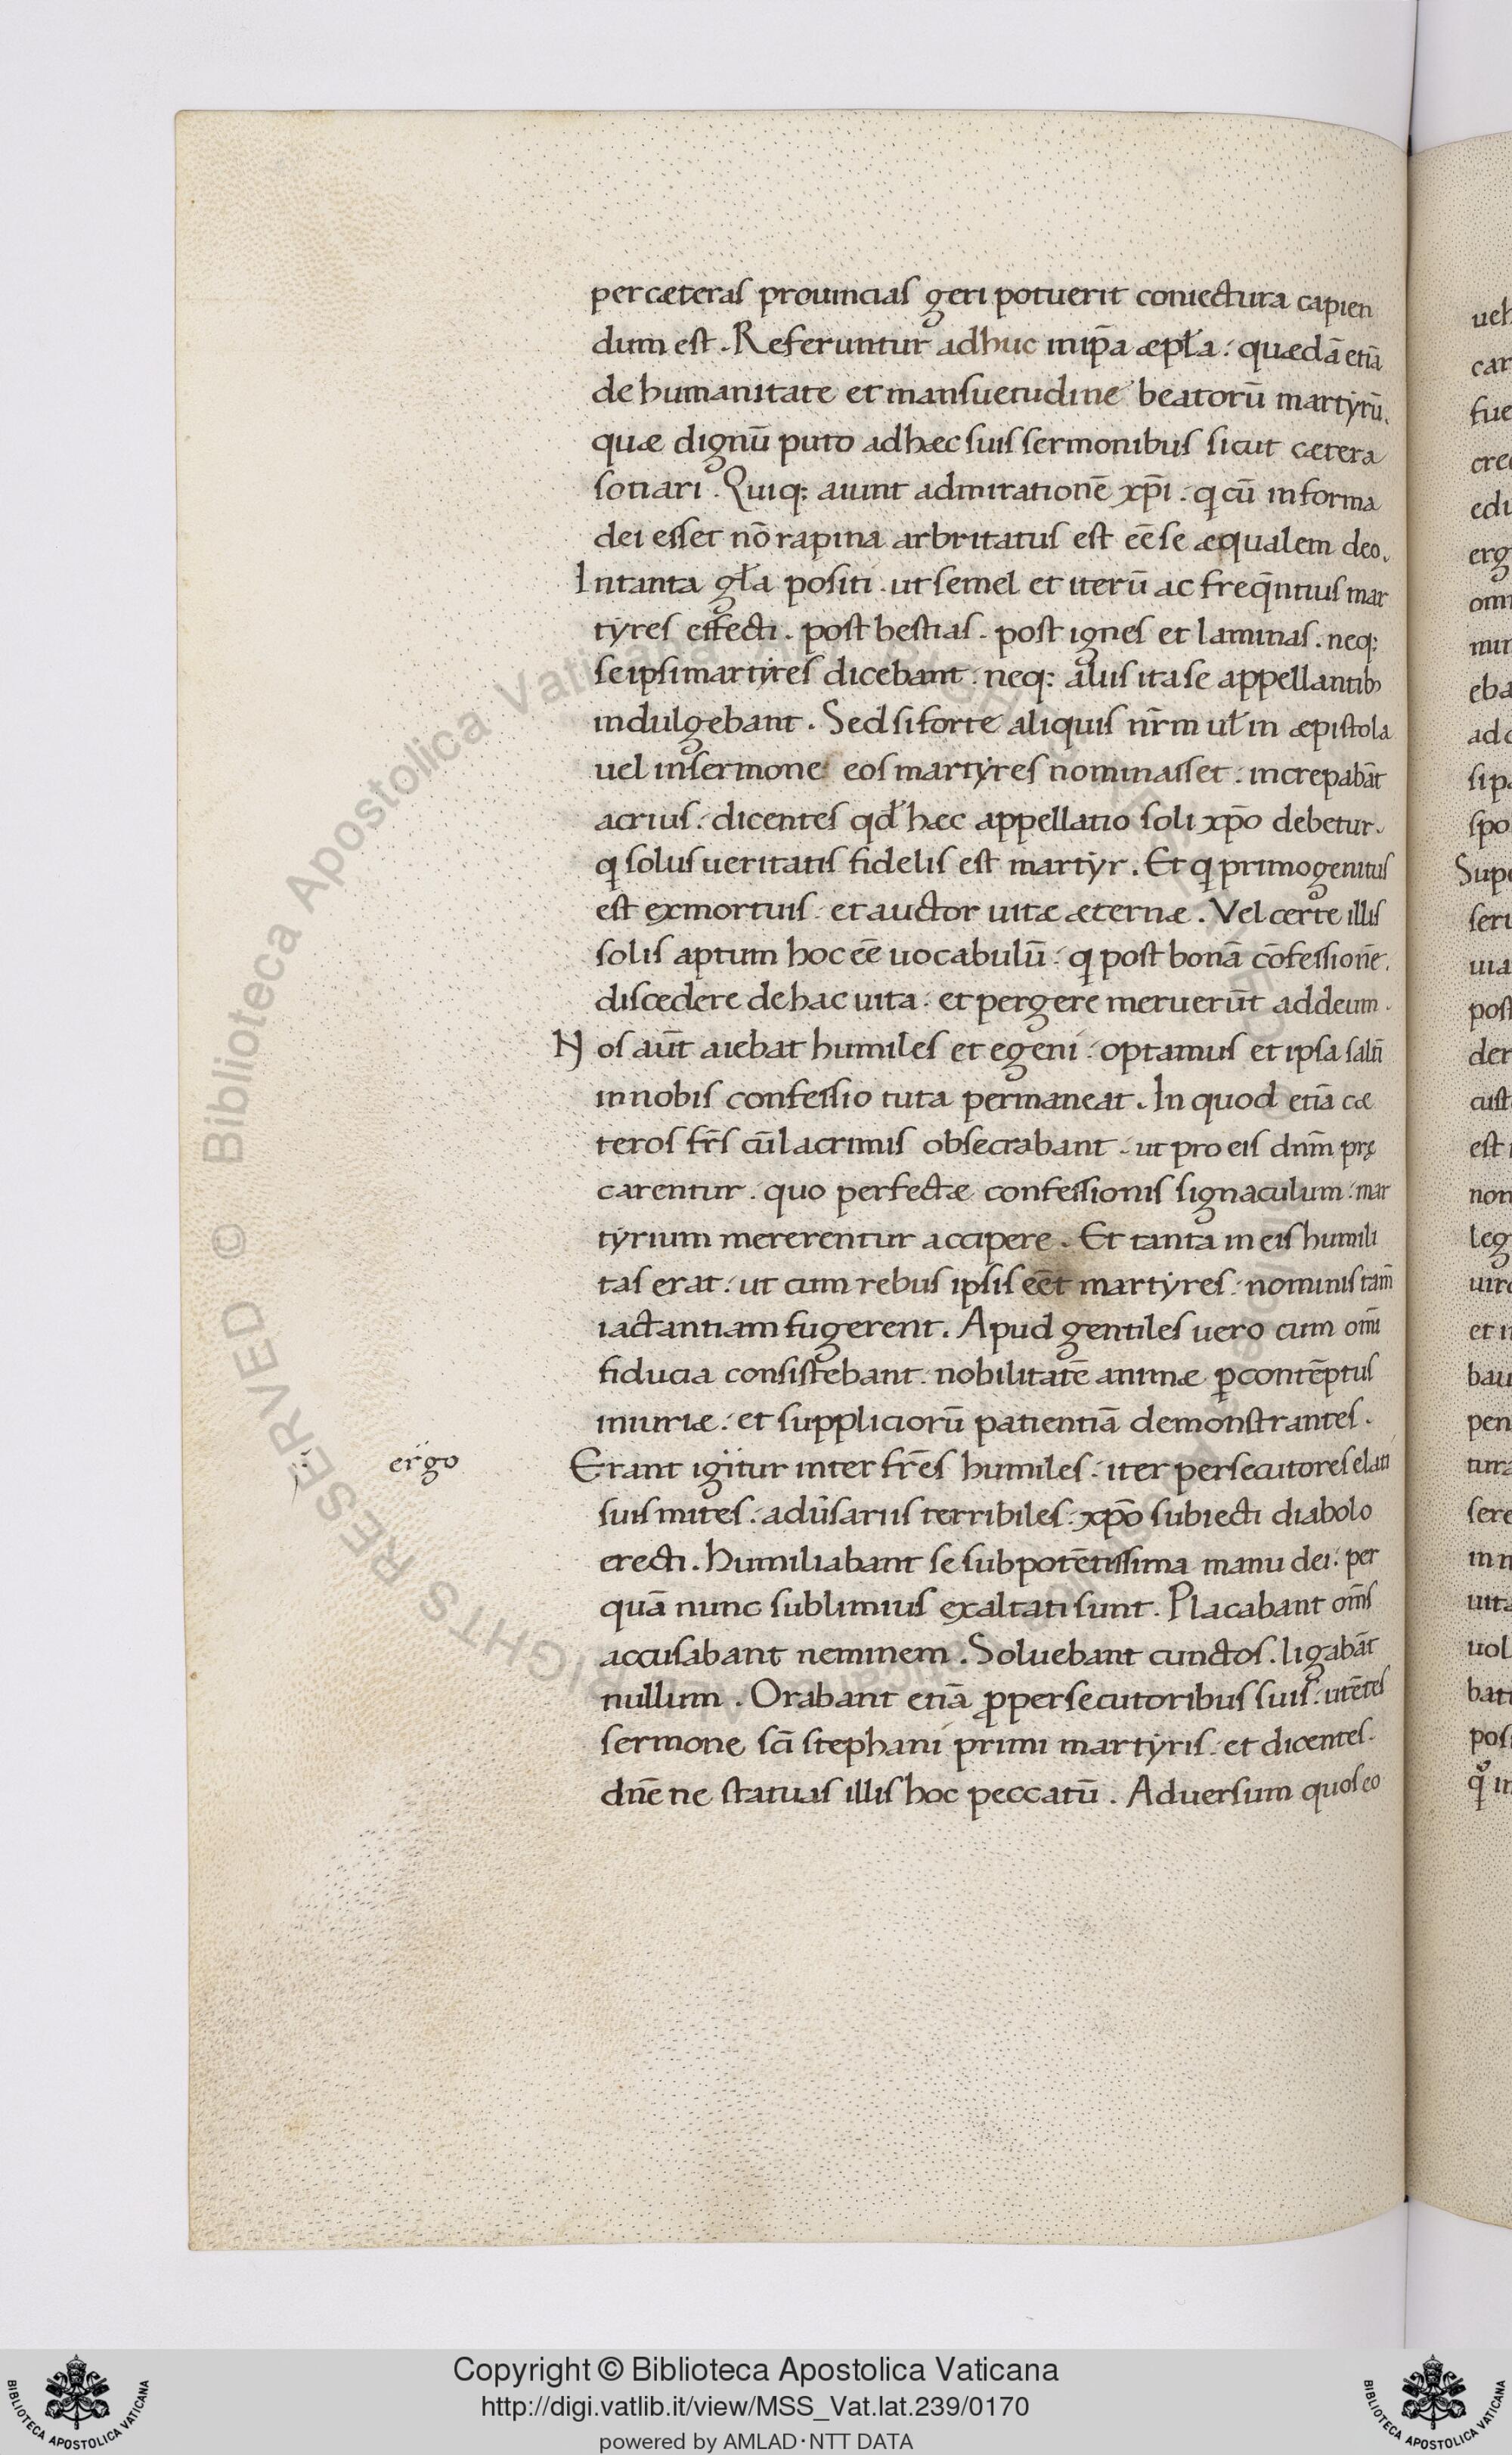 per cæteras prouincias geri potuerit coniectura capien
dum est. Referuntur adhuc in ip̄a æpła: quædā etiā
de humanitate et mansuetudine beatorū martyrū.
quæ dignū puto ad hæc suis sermonibus sicut cætera
sotiari. Quiq: aiunt admirationē xp̄i. q cū in forma
dei esset nō rapina arbritatus est eē se æqualem deo.
In tanta gła positi. ut semel et iterū ac freq̄ntius mar
tyres effecti. post bestias. post ignes et laminas. neq:
se ipsi martyres dicebant. neq: aliis ita se appellantib;
indulgebant. Sed si forte aliquis nr̄m uł in æpistola
uel in sermone eos martyres nominasset. increpabāt
acrius. dicentes qđ hæc appellatio soli xp̄o debetur.
q solus ueritatis fidelis est martyr. Et q primogenitus
est ex mortuis. et auctor uitæ æternæ. Vel certe illis
solis aptum hoc eē uocabulū. q post bonā cōfessionē.
discedere de hac uita. et pergere meruerūt ad deum.
Nos aūt aiebat humiles et egeni. optamus et ipsa saltī
in nobis confessio tuta permaneat. In quod etiā cæ
teros fr̄s cū lacrimis obsecrabant. ut pro eis dnm̄ prę
carentur. quo perfectæ confessionis signaculum. mar
tyrium mererentur accipere. Et tanta in eis humili
tas erat. ut cum rebus ipsis eēt martyres. nominis tam̄
iactantiam fugerent. Apud gentiles uero cum om̄i
fiducia consistebant. nobilitatē animæ ꝑ contēptus
iniuriæ. et suppliciorū patientiā demonstrantes.
ergo
Erant igitur inter fr̄es humiles. iter persecutores elati
suis mites. adu̾sariis terribiles. xp̄o subiecti diabolo
erecti. humiliabant se sub potētissima manu dei. per
quā nunc sublimius exaltati sunt. Placabant om̄s
accusabant neminem. Soluebant cunctos. ligabāt
nullum. Orabant etiā ꝓ persecutoribus suis. utētes
sermone sc̄i stephani primi martyris. et dicentes.
dn̄e ne statuas illis hoc peccatū. Aduersum quos eo
Copyright © Biblioteca Apostolica Vaticana
http://digi.vatlib.it/view/MSS_Vat.lat.239/0170
powered by AMLAD·NTT DATA
BIBLIOTECA APOSTOLICA VATICANA
BIBLIOTECA APOSTOLICA VATICANA